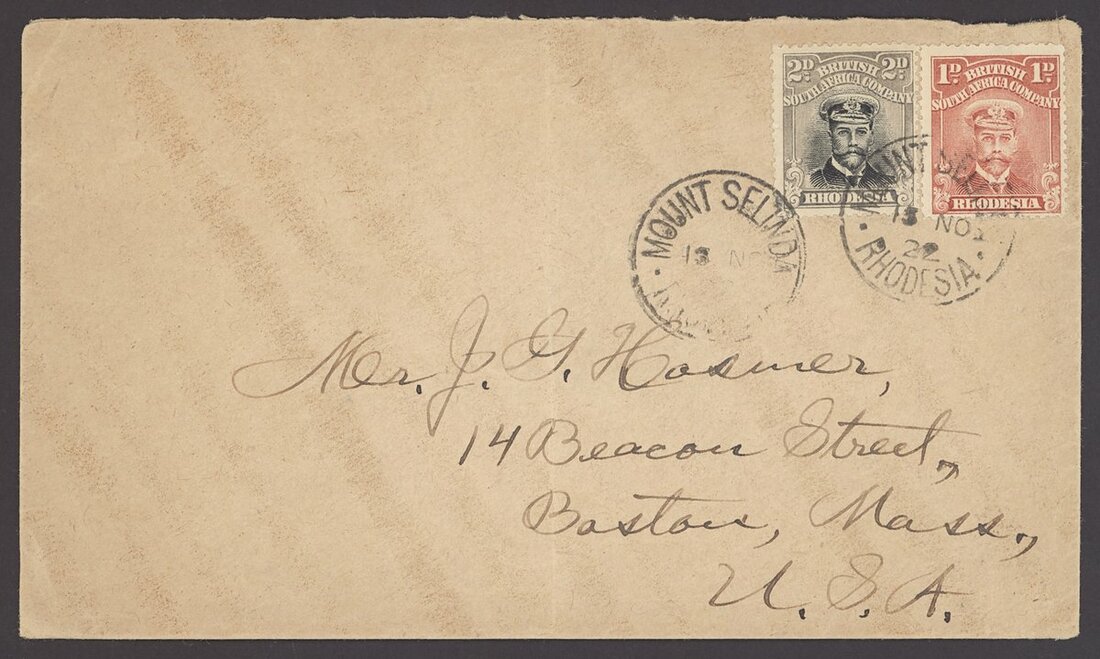 2D. 2D.
BRITISH
SOUTH AFRICA COMPANY
RHODESIA
1D. 1D.
BRITISH
SOUTH AFRICA COMPANY
RHODESIA
MOUNT SELINDA
13 NO
MOUNT SEL
13 NO
22
RHODESIA
Mr. J. G. Hosmer,
14 Beacon Street,
Boston, Mass.,
U. S. A.